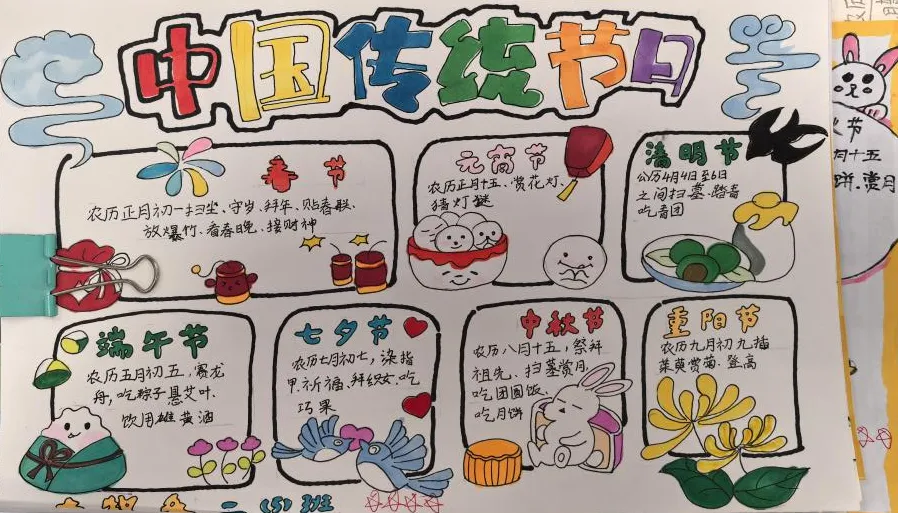 中国传统节日
春节
农历正月初一扫尘、守岁、拜年、贴春联、
放爆竹、看春晚、接财神
元宵节
农历正月十五、赏花灯、
猜灯谜
清明节
公历4月4日至6日
之间扫墓、踏青
吃青团
端午节
农历五月初五,赛龙
舟,吃粽子悬艾叶、
饮用雄黄酒
七夕节
农历七月初七,染指
甲.祈福、拜织女、吃
巧果
中秋节
农历八月十五,祭拜
祖先、扫墓赏月、
吃团圆饭、
吃月饼
重阳节
农历九月初九插
茱萸赏菊.登高
二(5)班
节
月十五
饼.赏月